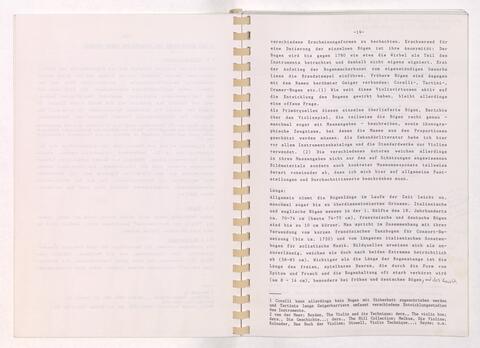 -19-
verschiedene Erscheinungsformen zu beobachten. Erschwerend für
eine Datierung der einzelnen Bögen ist ihre Anonymität: Der
Bogen wird bis gegen 1780 wie etwa die Wirbel als Teil des
Instruments betrachtet und deshalb nicht eigens signiert. Erst
der Aufstieg der Bogenmacherkunst zum eigenständigen Gewerbe
liess die Brandstempel einführen. Frühere Bögen sind dagegen
mit dem Namen berühmter Geiger verbunden: Corelli-, Tartini-,
Cramer-Bogen etc.(1) Wie weit diese Violinvirtuosen aktiv auf
die Entwicklung des Bogens gewirkt haben, bleibt allerdings
eine offene Frage.
Als Primärquellen dienen einzelne überlieferte Bögen, Berichte
über das Violinspiel, die teilweise die Bögen recht genau -
manchmal sogar mit Massangaben - beschreiben, sowie ikonogra-
phische Zeugnisse, bei denen die Masse aus den Proportionen
geschätzt werden müssen. Als Sekundärliteratur habe ich hier
vor allem Instrumentenkataloge und die Standardwerke zur Violine
verwendet. (2) Die verschiedenen Autoren weichen allerdings
in ihren Massangaben nicht nur des auf Schätzungen angewiesenen
Bildmaterials sondern auch konkreter Museumsexemplare teilweise
derart voneinander ab, dass ich mich hier auf allgemeine Fest-
stellungen und Durchschnittswerte beschränken muss.
Länge:
Allgemein nimmt die Bogenlänge im Laufe der Zeit leicht zu,
manchmal sogar bis zu überdimensionierten Grössen. Italienische
und englische Bögen messen in der 1. Hälfte des 18. Jahrhunderts
ca. 70-74 cm (heute 74-75 cm), französische und deutsche Bögen
sind bis zu 10 cm kürzer. Man spricht im Zusammenhang mit ihrer
Verwendung vom kurzen französischen Tanzbogen für Consort-Be-
setzung (bis ca. 1750) und vom längeren italienischen Sonaten-
bogen für solistische Musik. Bildquellen erweisen sich als un-
zuverlässig, weichen sie doch nach beiden Extremen beträchtlich
ab (58-83 cm). Wichtiger als die Länge der Bogenstange ist die
Länge des freien, spielbaren Haares, die durch die Form von
Spitze und Frosch und die Bogenhaltung oft stark verkürzt wird
(um 8 - 14 cm), besonders bei frühen und deutschen Bögen,
1 Corelli kann allerdings kein Bogen mit Sicherheit zugeschrieben werden
und Tartinis lange Geigerkarriere umfasst verschiedene Entwicklungsstufen
des Instruments.
2 van der Meer; Boyden, The Violin and its Technique; ders., The violin bow;
ders., Die Geschichte...; ders., The Hill Collection; Melkus, Die Violine;
Kolneder, Das Buch der Violine; Stowell, Violin Technique...; Seyde; u.a.